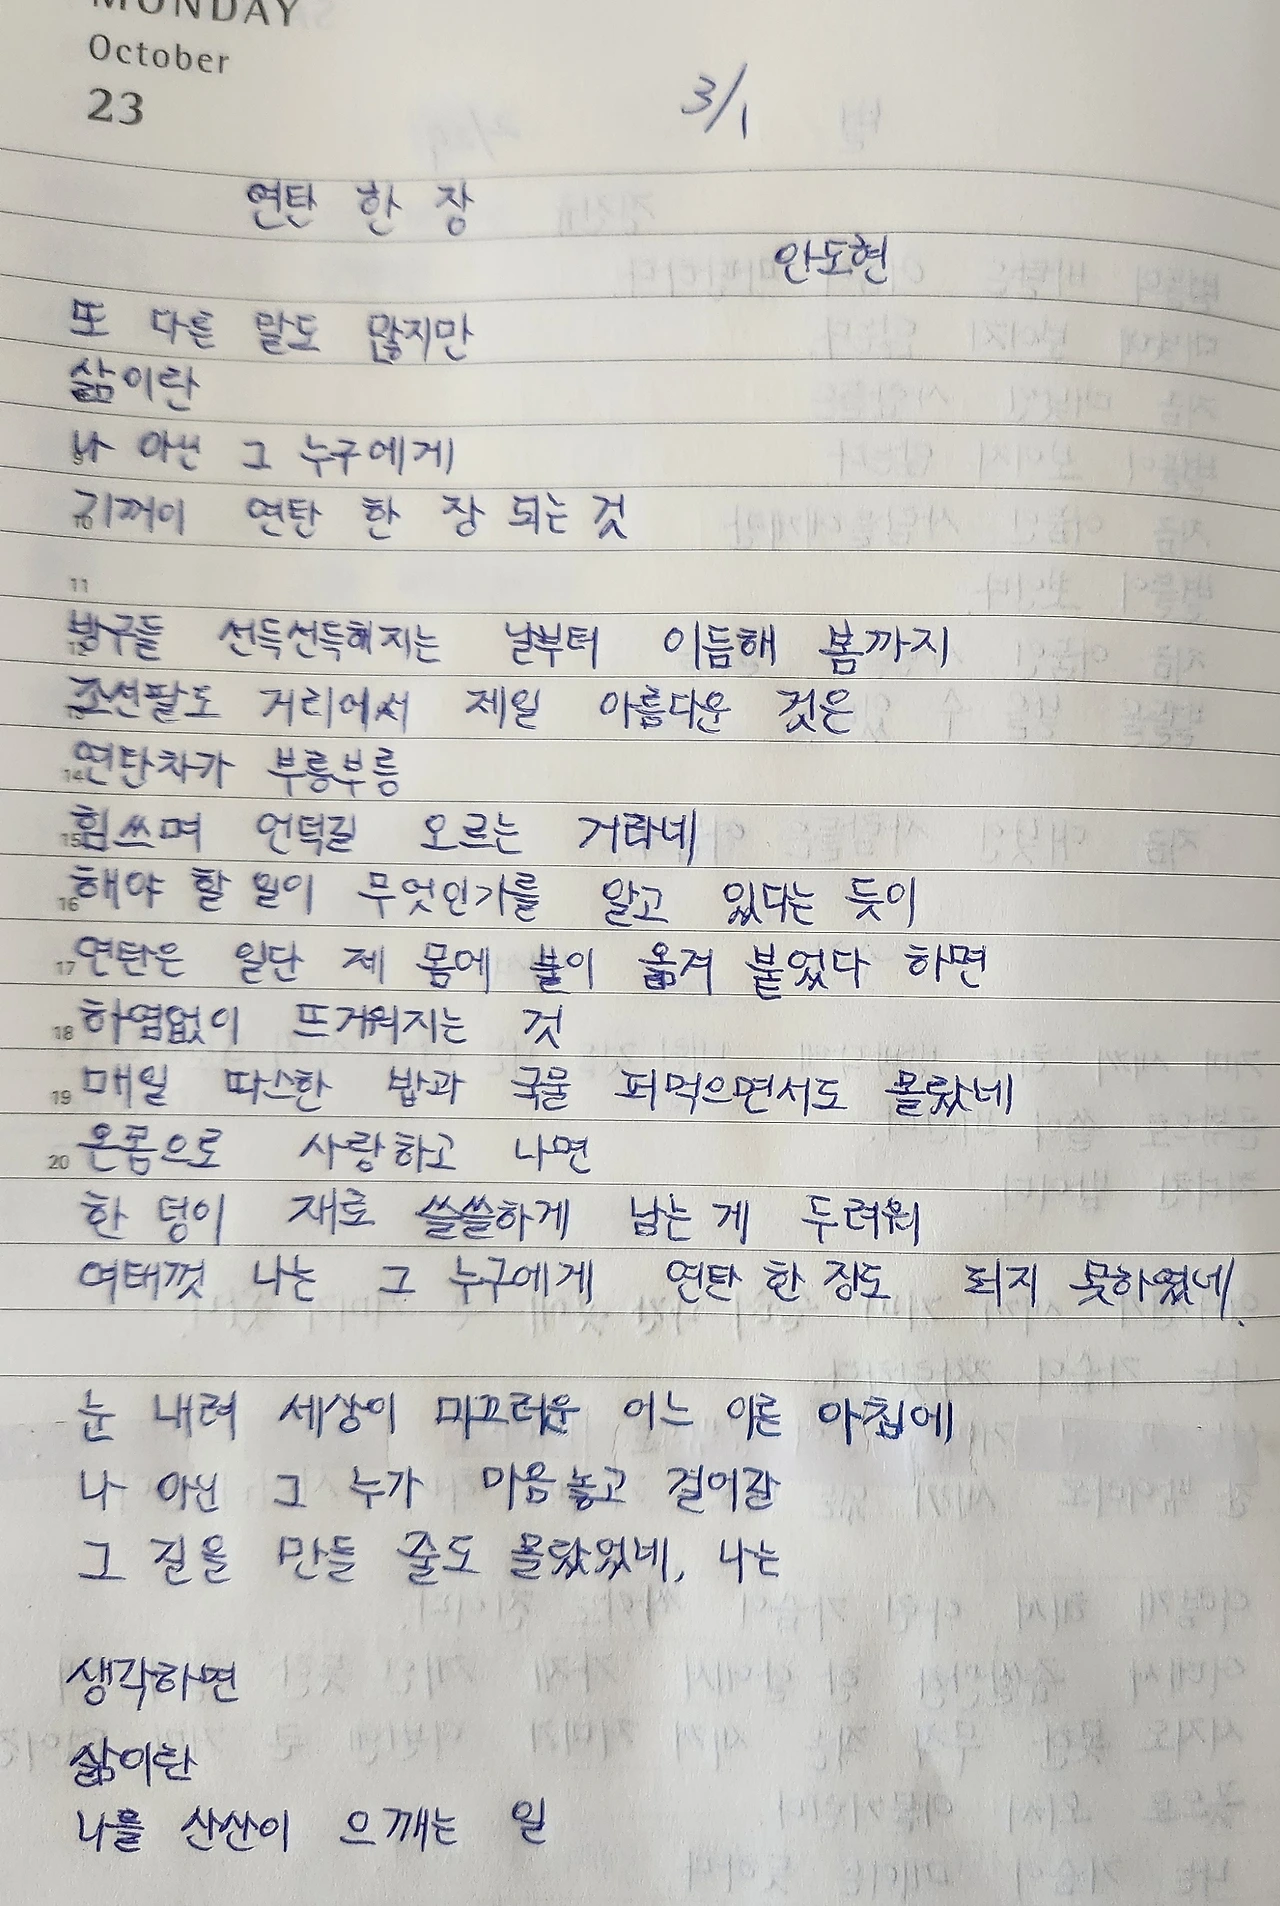 MONDAY
October
23
3/1
연탄 한 장
안도현
또 다른 말도 많지만
삶이란
나 아닌 그 누구에게
기꺼이 연탄 한 장 되는 것
11
방구들 선득선득해지는 날부터 이듬해 봄까지
조선팔도 거리에서 제일 아름다운 것은
14 연탄차가 부릉부릉
15 힘쓰며 언덕길 오르는 거라네
16 해야 할 일이 무엇인가를 알고 있다는 듯이
17 연탄은 일단 제 몸에 불이 옮겨 붙었다 하면
18 하염없이 뜨거워지는 것
19 매일 따스한 밥과 국물 퍼먹으면서도 몰랐네
20 온몸으로 사랑하고 나면
한 덩이 재로 쓸쓸하게 남는 게 두려워
여태껏 나는 그 누구에게 연탄 한 장도 되지 못하였네.
눈 내려 세상이 미끄러운 어느 이른 아침에
나 아닌 그 누가 마음놓고 걸어갈
그 길을 만들 줄도 몰랐었네, 나는
생각하면
삶이란
나를 산산이 으깨는 일